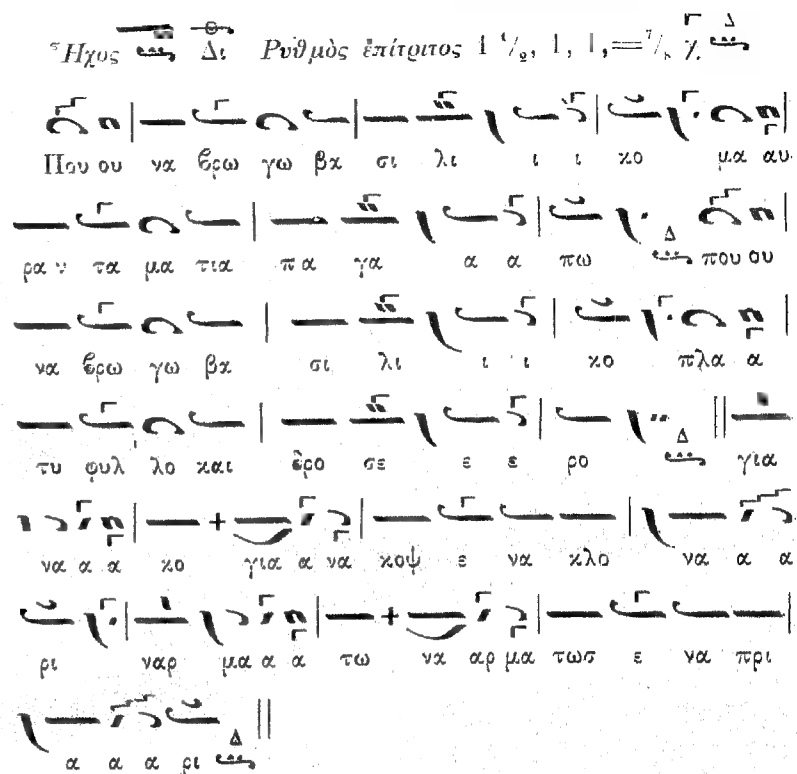 Ἦχος Δι Ρυθμὸς ἐπίτριτος 1 1/2, 1, 1,=7/8 χ Δ
Που ου να βρω γω βα σι λι ι ι κο μα αυ
ραν τα μα τια πα γα α α πω Δ που ου
να βρω γω βα σι λι ι ι κο πλα α
τυ φυλ λο και δρο σε ε ε ρο Δ για
να α α κο για α να κοψ ε να κλο να α α
ρι ναρ μα α α τω να αρ μα τωσ ε να πρι
α α α ρι Δ